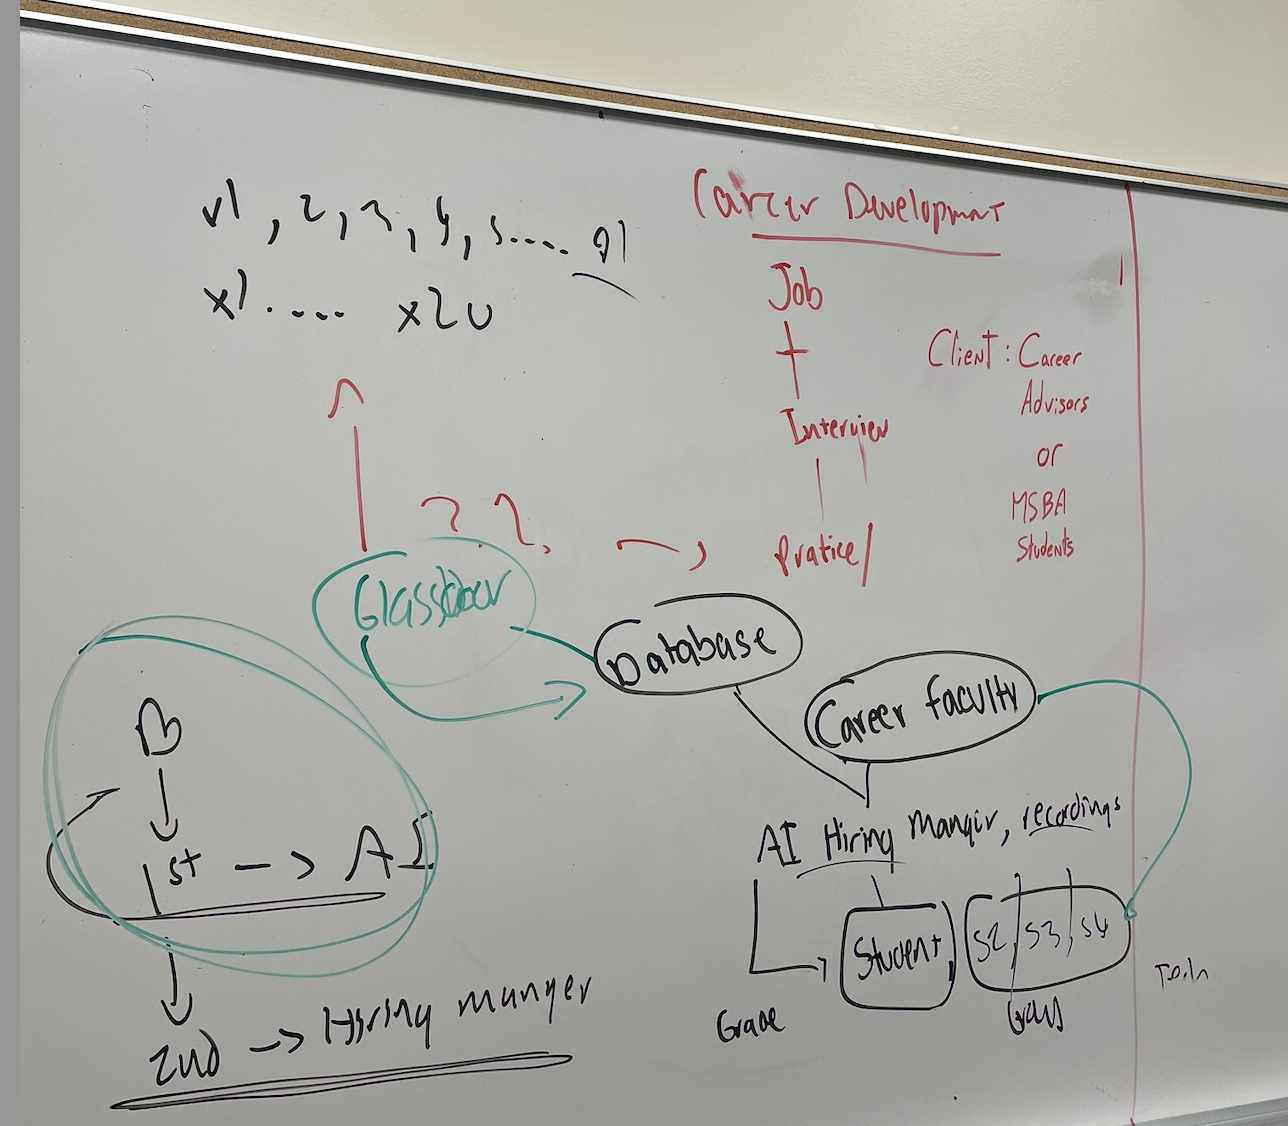 v1, 2, 3, 4, 5.... 91
x1.... x20
Career Development
Job
+
Interview
Pratice/
Client: Career
Advisors
or
MSBA
Students
? ?
Glassdoor
Database
Career faculty
AI Hiring Manger, recordings
Student, S2, S3, S4
Grade
B
1st -> AI
2nd -> Hiring manger